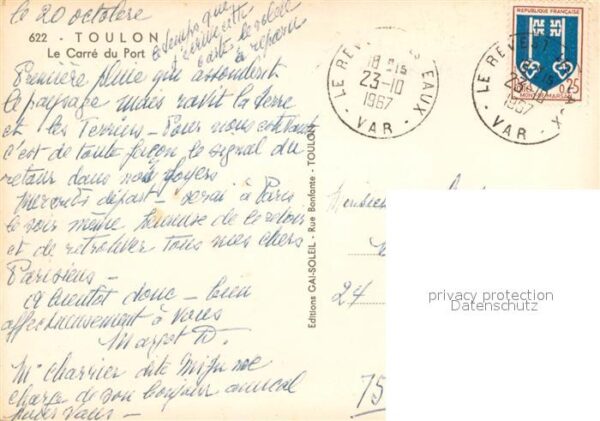 le 20 octobre
622 - TOULON
Le Carré du Port
le temps que
j'écrive cette
carte le soleil
a reparu
Première pluie qui assombrit
le paysage mais ravit la terre
et les Terriens - Pour nous
c'est de toute façon le signal du
retour dans nos foyers
Mercredi départ - serai à Paris
le soir même heureuse de
et de retrouver tous mes chers
Parisiens -
à bientôt donc - bien
affectueusement à vous
Margot D.
Me Charrier dite Mizu me
charge de son bonjour amical
pour vous -
Editions GAI-SOLEIL - Rue Bonfante - TOULON
LE REVEST LES EAUX
18 H 15
23-10
1967
- VAR -
LE REVEST LES EAUX
18 H 15
23-10
1967
- VAR -
REPUBLIQUE FRANÇAISE
0,25
MONT-DE-MARSAN
Monsieur
24
75
privacy protection
Datenschutz